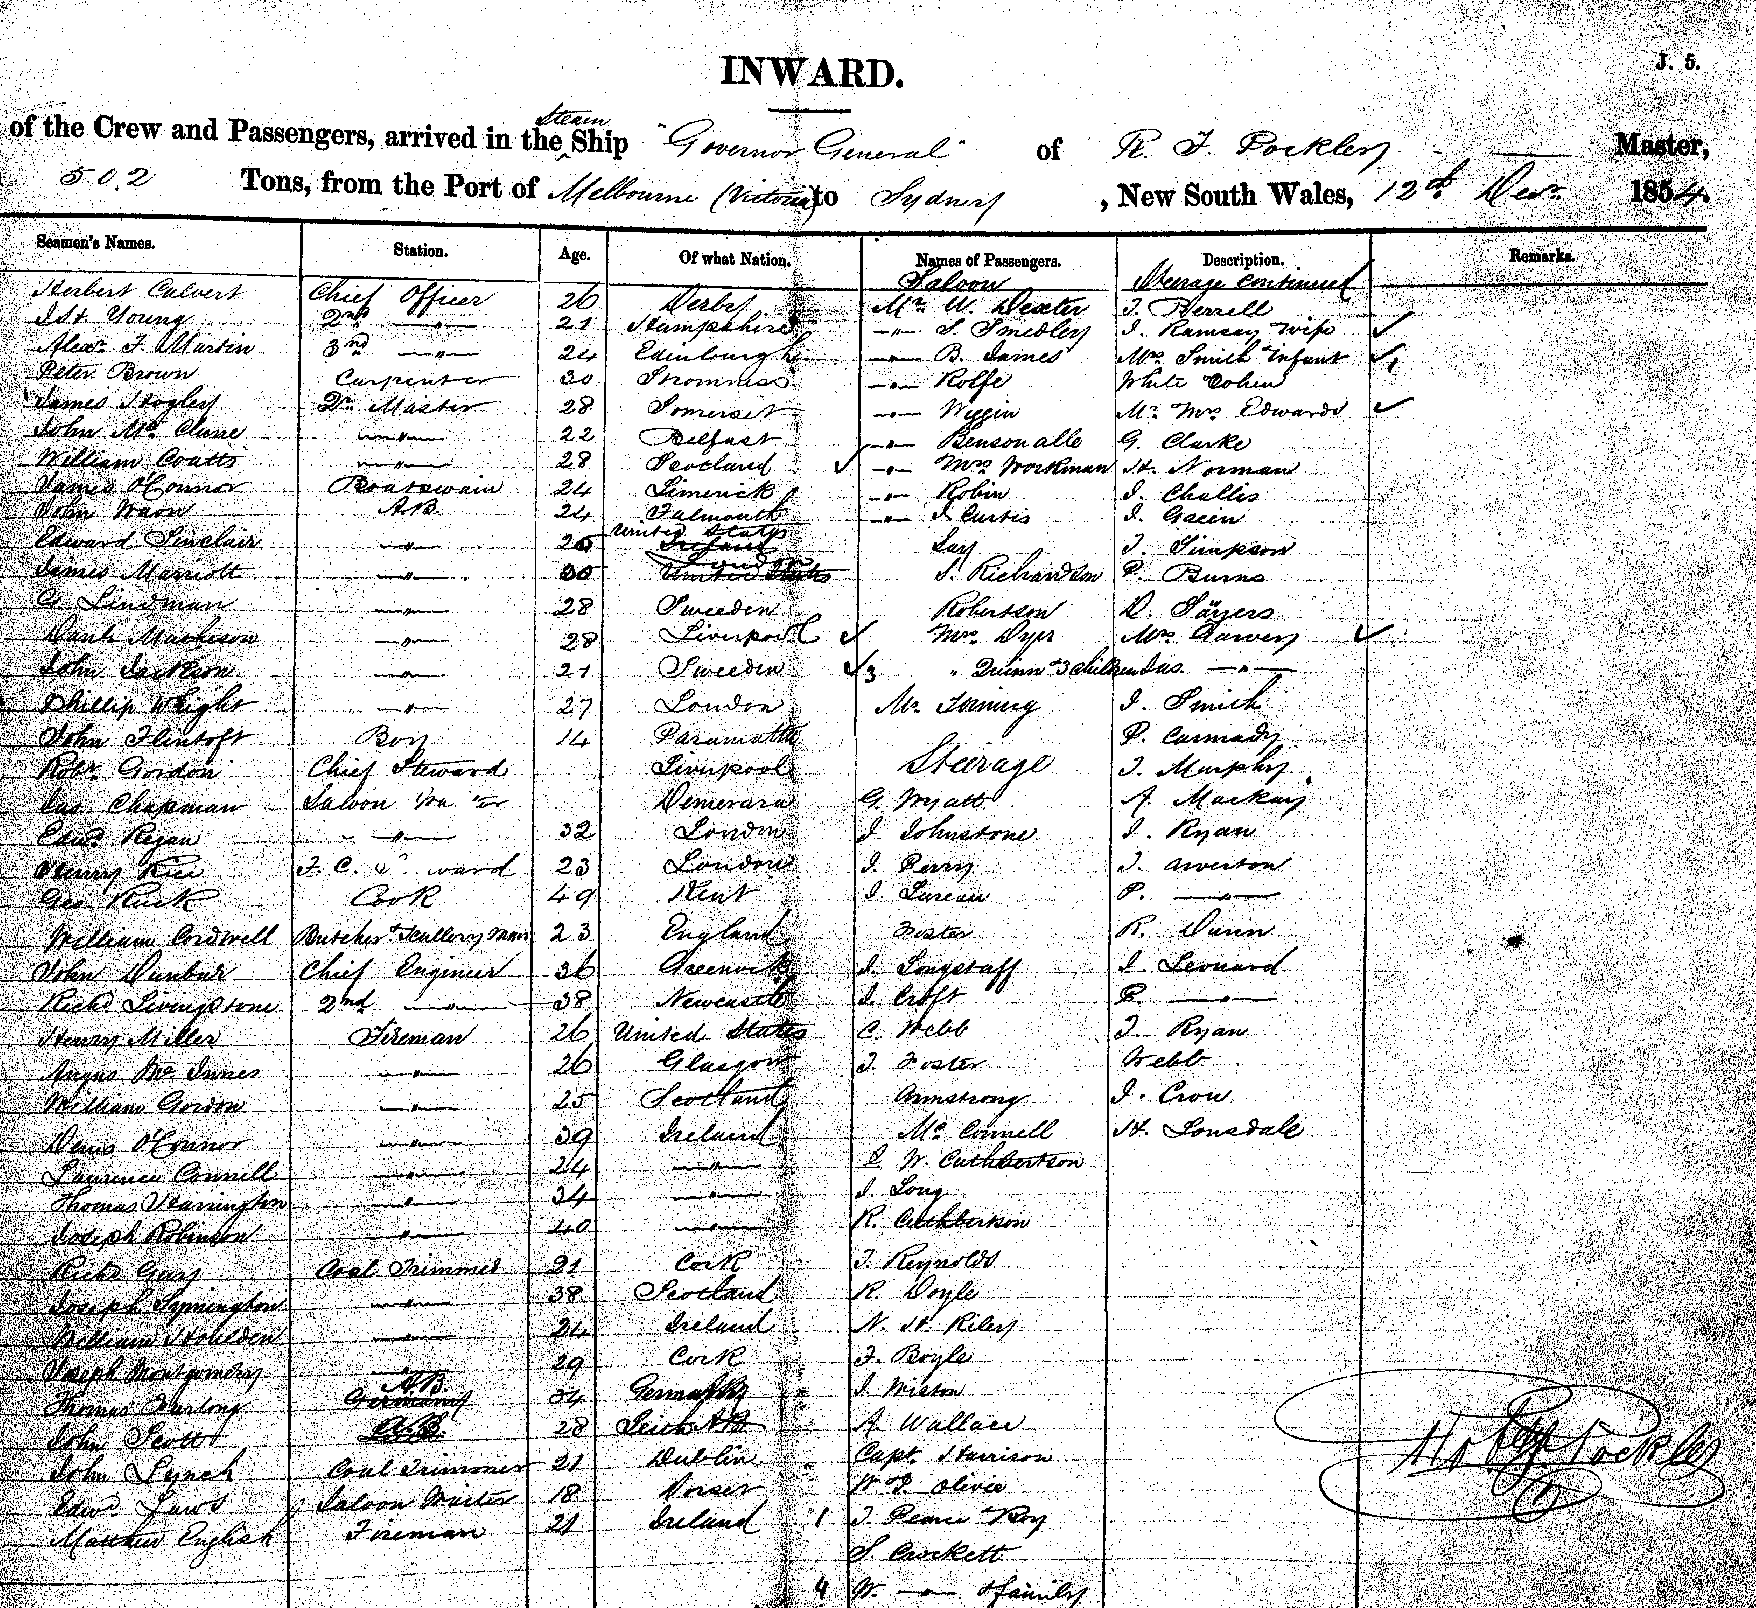 INWARD.
J. 5.
of the Crew and Passengers, arrived in the Steam Ship "Governor General" of R. F. Pockley Master,
502 Tons, from the Port of Melbourne (Victoria) to Sydney, New South Wales, 12th Decr. 1854.
Seamen's Names. Station. Age. Of what Nation. Names of Passengers. Description. Remarks.
Saloon Steerage continued
Herbert Calvert Chief Officer 26 Derby Mr W. Dexter T. Berrell
Young 2nd —"— 21 Hampshire —"— S. Smedley J. Ramsay Wife ✓
Alexr. F. Martin 3rd —"— 24 Edinburgh —"— B. James Mrs Smith Infant ✓1
Peter Brown Carpenter 30 Stromness —"— Rolfe White Cohen
James Stogley Qr. Master 28 Somerset —"— Wiggin Mr Mrs Edwards ✓
John Mc Clune —"— 22 Belfast —"— Bensonalle G. Clarke
William Coatts —"— 28 Scotland ✓ —"— Mrs Workman H. Norman
James O'Connor Boatswain 24 Limerick —"— Robin J. Challis
John A.B. 24 Falmouth —"— J. Curtis J. Green
Edward Sinclair —"— 25 United States Ireland Lay T. Simpson
James Marriott —"— 30 London United States J. Richardson P. Burns
G. Lindman —"— 28 Sweeden Robertson D. Sayers
Mathison —"— 28 Liverpool ✓ Mrs Dyer Mrs Garvey ✓
John Jackson —"— 21 Sweeden ✓3 " Quinn & 3 children Jas. —"—
Phillip Wright —"— 27 London Mr J. Smith
John Flentoft Boy 14 Paramatta P. Carmady
Robt. Gordon Chief Steward Liverpool Steerage T. Murphy
Jas. Chapman Saloon Demerara G. Wyatt A. Mackay
Edwd. Regan —"— 32 London J. Johnstone J. Ryan
Henry Rice F. C. ward 23 London J. Perry J.
Geo. Cook 49 Kent J. P. —"—
William Cordwell Butcher & Scullery man 23 England Foster R. Dunn
John Dunbar Chief Engineer 36 Greenock J. Longstaff J. Leonard
Richd. Livingstone 2nd —"— 38 Newcastle J. Croft P. —"—
Henry Miller Fireman 26 United States C. Webb T. Ryan
Angus Mc Innes —"— 26 Glasgow T. Foster Webb
William Gordon —"— 25 Scotland Armstrong J. Crow
Denis O'Connor —"— 39 Ireland Mc Connell H. Lonsdale
Laurence Connell —"— 24 —"— J. W. Cuthbertson
Thomas —"— 34 —"— J. Long
Joseph Robinson —"— 40 —"— R. Cuthbertson
Richd. Gary Coal Trimmer 21 Cork T. Reynolds
Joseph Symington —"— 38 Scotland R. Doyle
William —"— 24 Ireland N. H. Riley
Joseph Montgomery —"— 29 Cork F. Boyle
Thomas Furlong A.B. Germany 34 Germany J. Wiston
John Scott A.B. 28 Leith A.B. A. Wallace
John Lynch Coal Trimmer 21 Dublin Capt. Harrison
Edwd. Laws Saloon Waiter 18 Dorset W. J. Olivie
Matthew English Fireman 21 Ireland 1 J. Pearce Boy
S. Crockett
4 W. —"— & family
Pockley